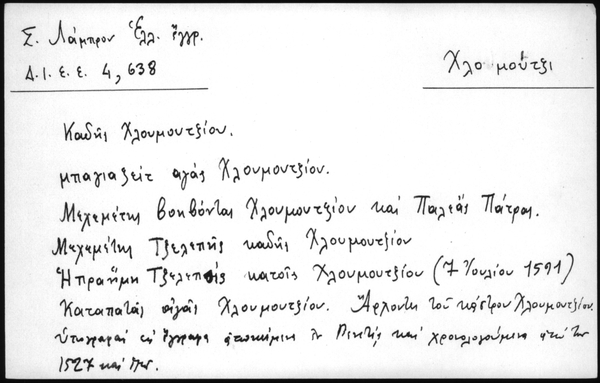 Σ. Λάμπρου Ἑλλ. ἔγγρ.
Δ.Ι.Ε.Ε. 4, 638
Χλομούτζι
Καδῆς Χλουμουτζίου.
μπαγιαζεὶτ ἀγάς Χλουμουτζίου.
Μεχεμέτης βοηβόντας Χλουμουτζίου καὶ Παλεᾶς Πάτρας.
Μεχεμέτης Τζελεπῆς καδῆς Χλουμουτζίου
Ἠπραήμη Τζελεπῆς κατοῖς Χλουμουτζίου (7 Ἰουλίου 1591)
Καταπατάς ἀγᾶς Χλουμουτζίου. Ἄρχοντη τοῦ κάστρου Χλουμουτζίου.
ὑπογραφαὶ εἰς ἔγγραφα ἀποκείμενα ἐν Βενετίᾳ καὶ χρονολογούμενα ἀπὸ τοῦ
1527 καὶ